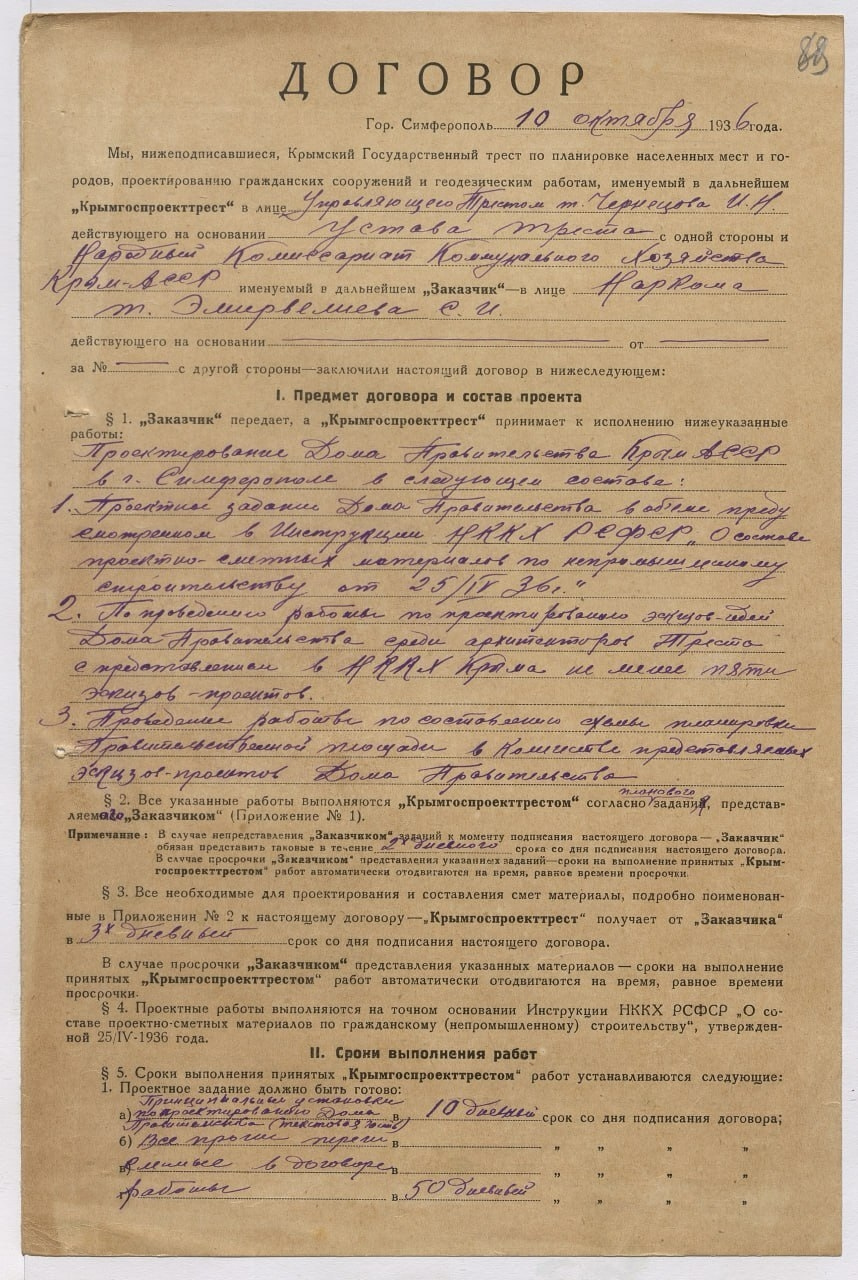 88
ДОГОВОР
Гор. Симферополь 10 октября 1936 года.
Мы, нижеподписавшиеся, Крымский Государственный трест по планировке населенных мест и го-
родов, проектированию гражданских сооружений и геодезическим работам, именуемый в дальнейшем
„Крымгоспроекттрест“ в лице Управляющего Трестом т. Чернецова И. Н.
действующего на основании Устава треста с одной стороны и
Народный Комиссариат Коммунального Хозяйства
Крым-АССР именуемый в дальнейшем „Заказчик“—в лице Наркома
т. Эмирвелиева С. И.
действующего на основании — от —
за № — с другой стороны—заключили настоящий договор в нижеследующем:
I. Предмет договора и состав проекта
§ 1. „Заказчик“ передает, а „Крымгоспроекттрест“ принимает к исполнению нижеуказанные
работы:
Проектирование Дома Правительства Крым АССР
в г. Симферополе в следующем составе:
1. Проектное задание Дома Правительства в обеме преду
смотренном в Инструкции НККХ РСФСР „О составе
проектно-сметных материалов по непромышленному
строительству от 25/IV 36 г.“
2. По проведению работы по проектированию эскизов-идей
Дома Правительства среди архитекторов Треста
с представлением в НККХ Крыма не менее пяти
эскизов-проектов.
3. Проведение работы по составлению схемы планировки
Правительственной площади в количестве представляемых
эскизов-проектов Дома Правительства
§ 2. Все указанные работы выполняются „Крымгоспроекттрестом“ согласно планового задания, представ-
ляемого „Заказчиком“ (Приложение № 1).
Примечание: В случае непредставления „Заказчиком“ заданий к моменту подписания настоящего договора—„Заказчик“
обязан представить таковые в течение 2х дневного срока со дня подписания настоящего договора.
В случае просрочки „Заказчиком“ представления указанных заданий—сроки на выполнение принятых „Крым-
госпроекттрестом“ работ автоматически отодвигаются на время, равное времени просрочки.
§ 3. Все необходимые для проектирования и составления смет материалы, подробно поименован-
ные в Приложении № 2 к настоящему договору—„Крымгоспроекттрест“ получает от „Заказчика“
в 3х дневный срок со дня подписания настоящего договора.
В случае просрочки „Заказчиком“ представления указанных материалов — сроки на выполнение
принятых „Крымгоспроекттрестом“ работ автоматически отодвигаются на время, равное времени
просрочки.
§ 4. Проектные работы выполняются на точном основании Инструкции НККХ РСФСР „О со-
ставе проектно-сметных материалов по гражданскому (непромышленному) строительству“, утвержден-
ной 25/IV-1936 года.
II. Сроки выполнения работ
§ 5. Сроки выполнения принятых „Крымгоспроекттрестом“ работ устанавливаются следующие:
1. Проектное задание должно быть готово:
Принципиальные установки
а) по проектированию Дома в 10 дневный срок со дня подписания договора;
Правительства (текстовая часть)
б) Все прочие пере в „ „ „ „
в) в договоре в „ „ „ „
г) работы в 50 дневный „ „ „ „